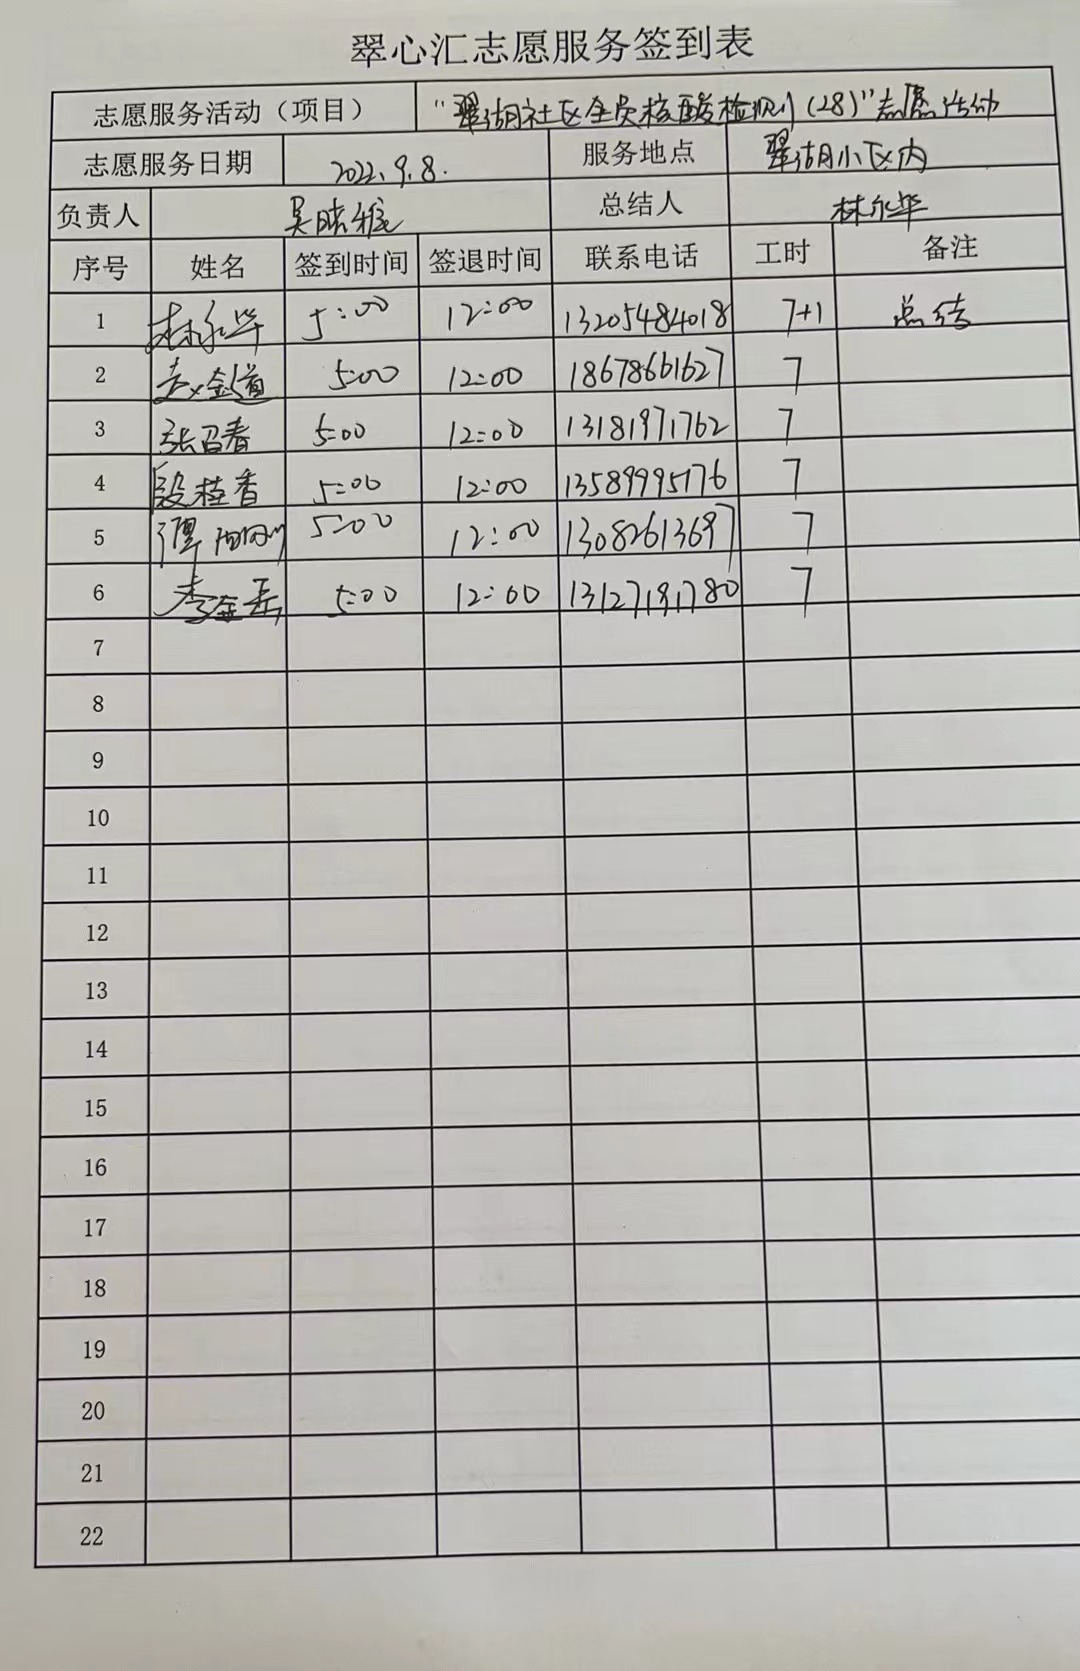 翠心汇志愿服务签到表
志愿服务活动（项目） “翠湖社区全员核酸检测(28)”志愿活动
志愿服务日期 2022.9.8. 服务地点 翠湖小区内
负责人 吴 总结人 林永华
序号 姓名 签到时间 签退时间 联系电话 工时 备注
1 林永华 5:00 12:00 13205484018 7+1 总结
2 5:00 12:00 18678661627 7
3 张召春 5:00 12:00 13181971762 7
4 段桂香 5:00 12:00 13589995176 7
5 5:00 12:00 13082613697 7
6 5:00 12:00 7
7
8
9
10
11
12
13
14
15
16
17
18
19
20
21
22